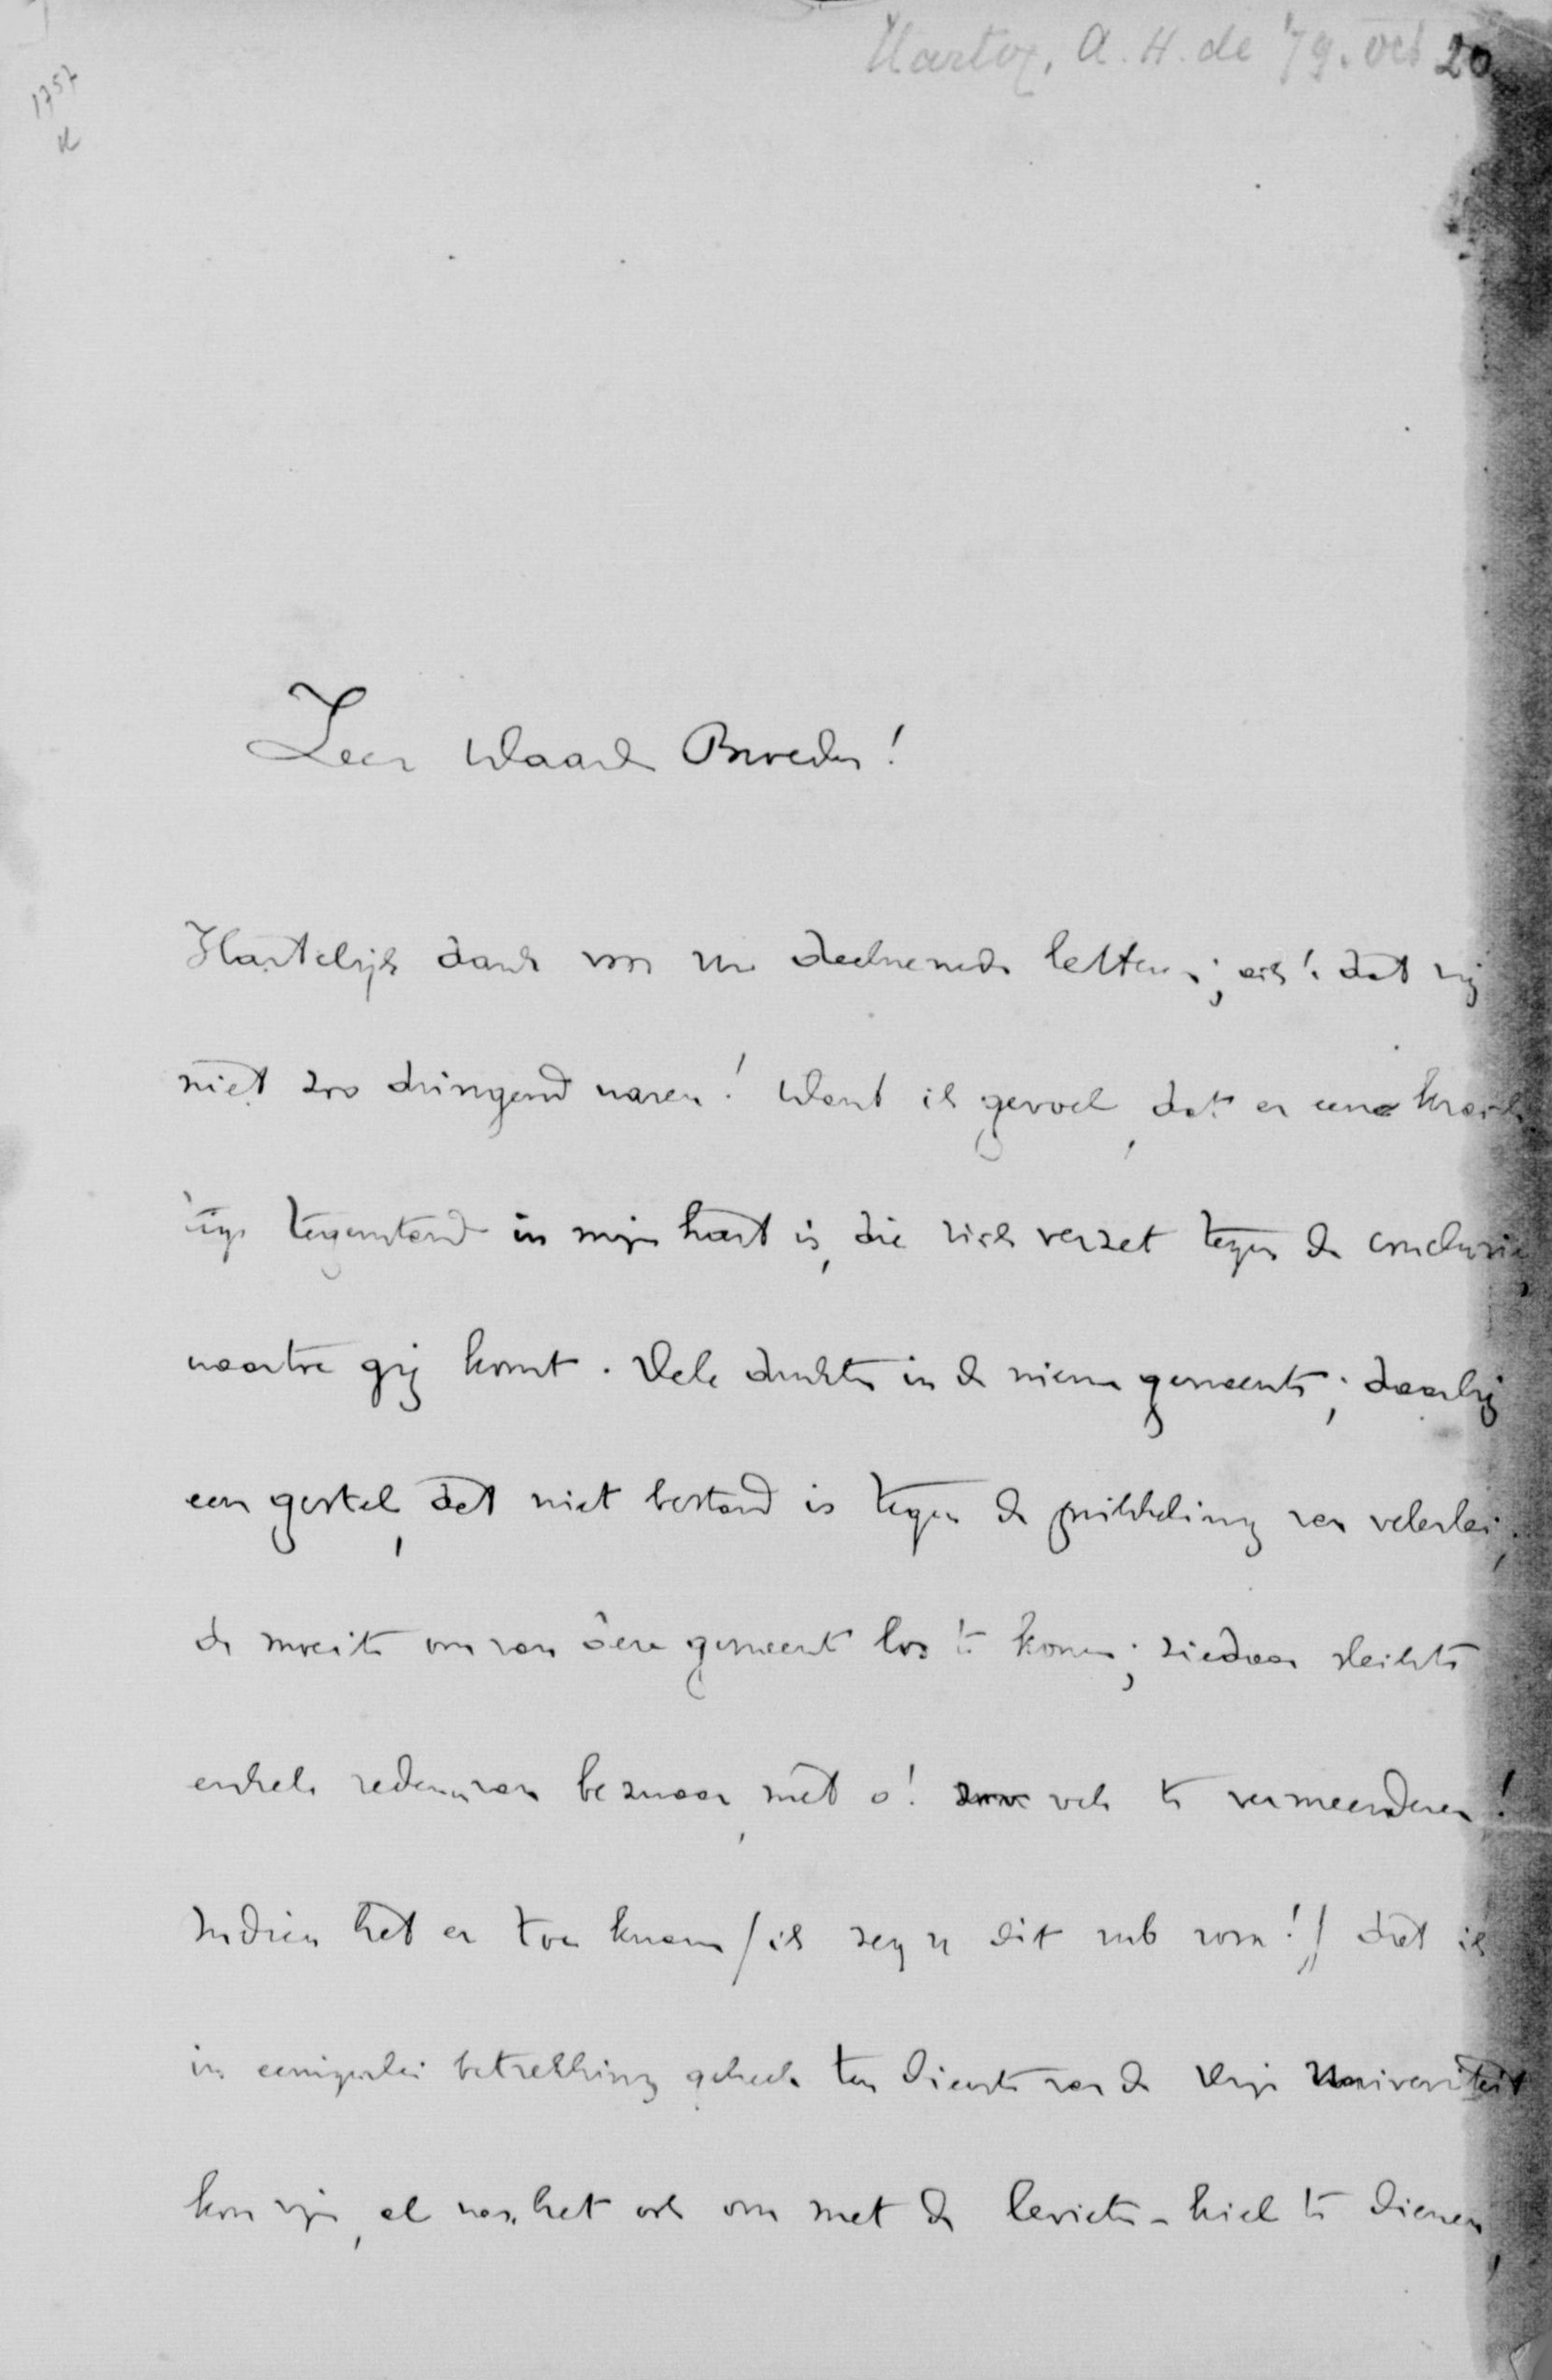 Hartog, A. H. de '79. Oct 20
1757
K
Zeer Waarde Broeder!
Hartelijk dank voor uw deelnemende letteren; ach! dat zij
niet zoo dringend waren! Want ik gevoel, dat er eene krach
tige tegenstand in mijn hart is, die zich verzet tegen de conclusie,
waartoe gij komt. Vele drukte in de nieuwe gemeente; daarbij
een gestel, dat niet bestand is tegen de prikkeling van velerlei;
de moeite om van deze gemeente los te komen; ziedaar slechts
enkele redenen van bezwaar, met o! vele te vermeerderen!
Indien het er toe kwam /ik zeg u dit sub rosa!/ dat ik
in eenigerlei betrekking geheel ten dienste van de Vrije Universiteit
kon zijn, al was het ook om met de leviten-kiel te dienen,